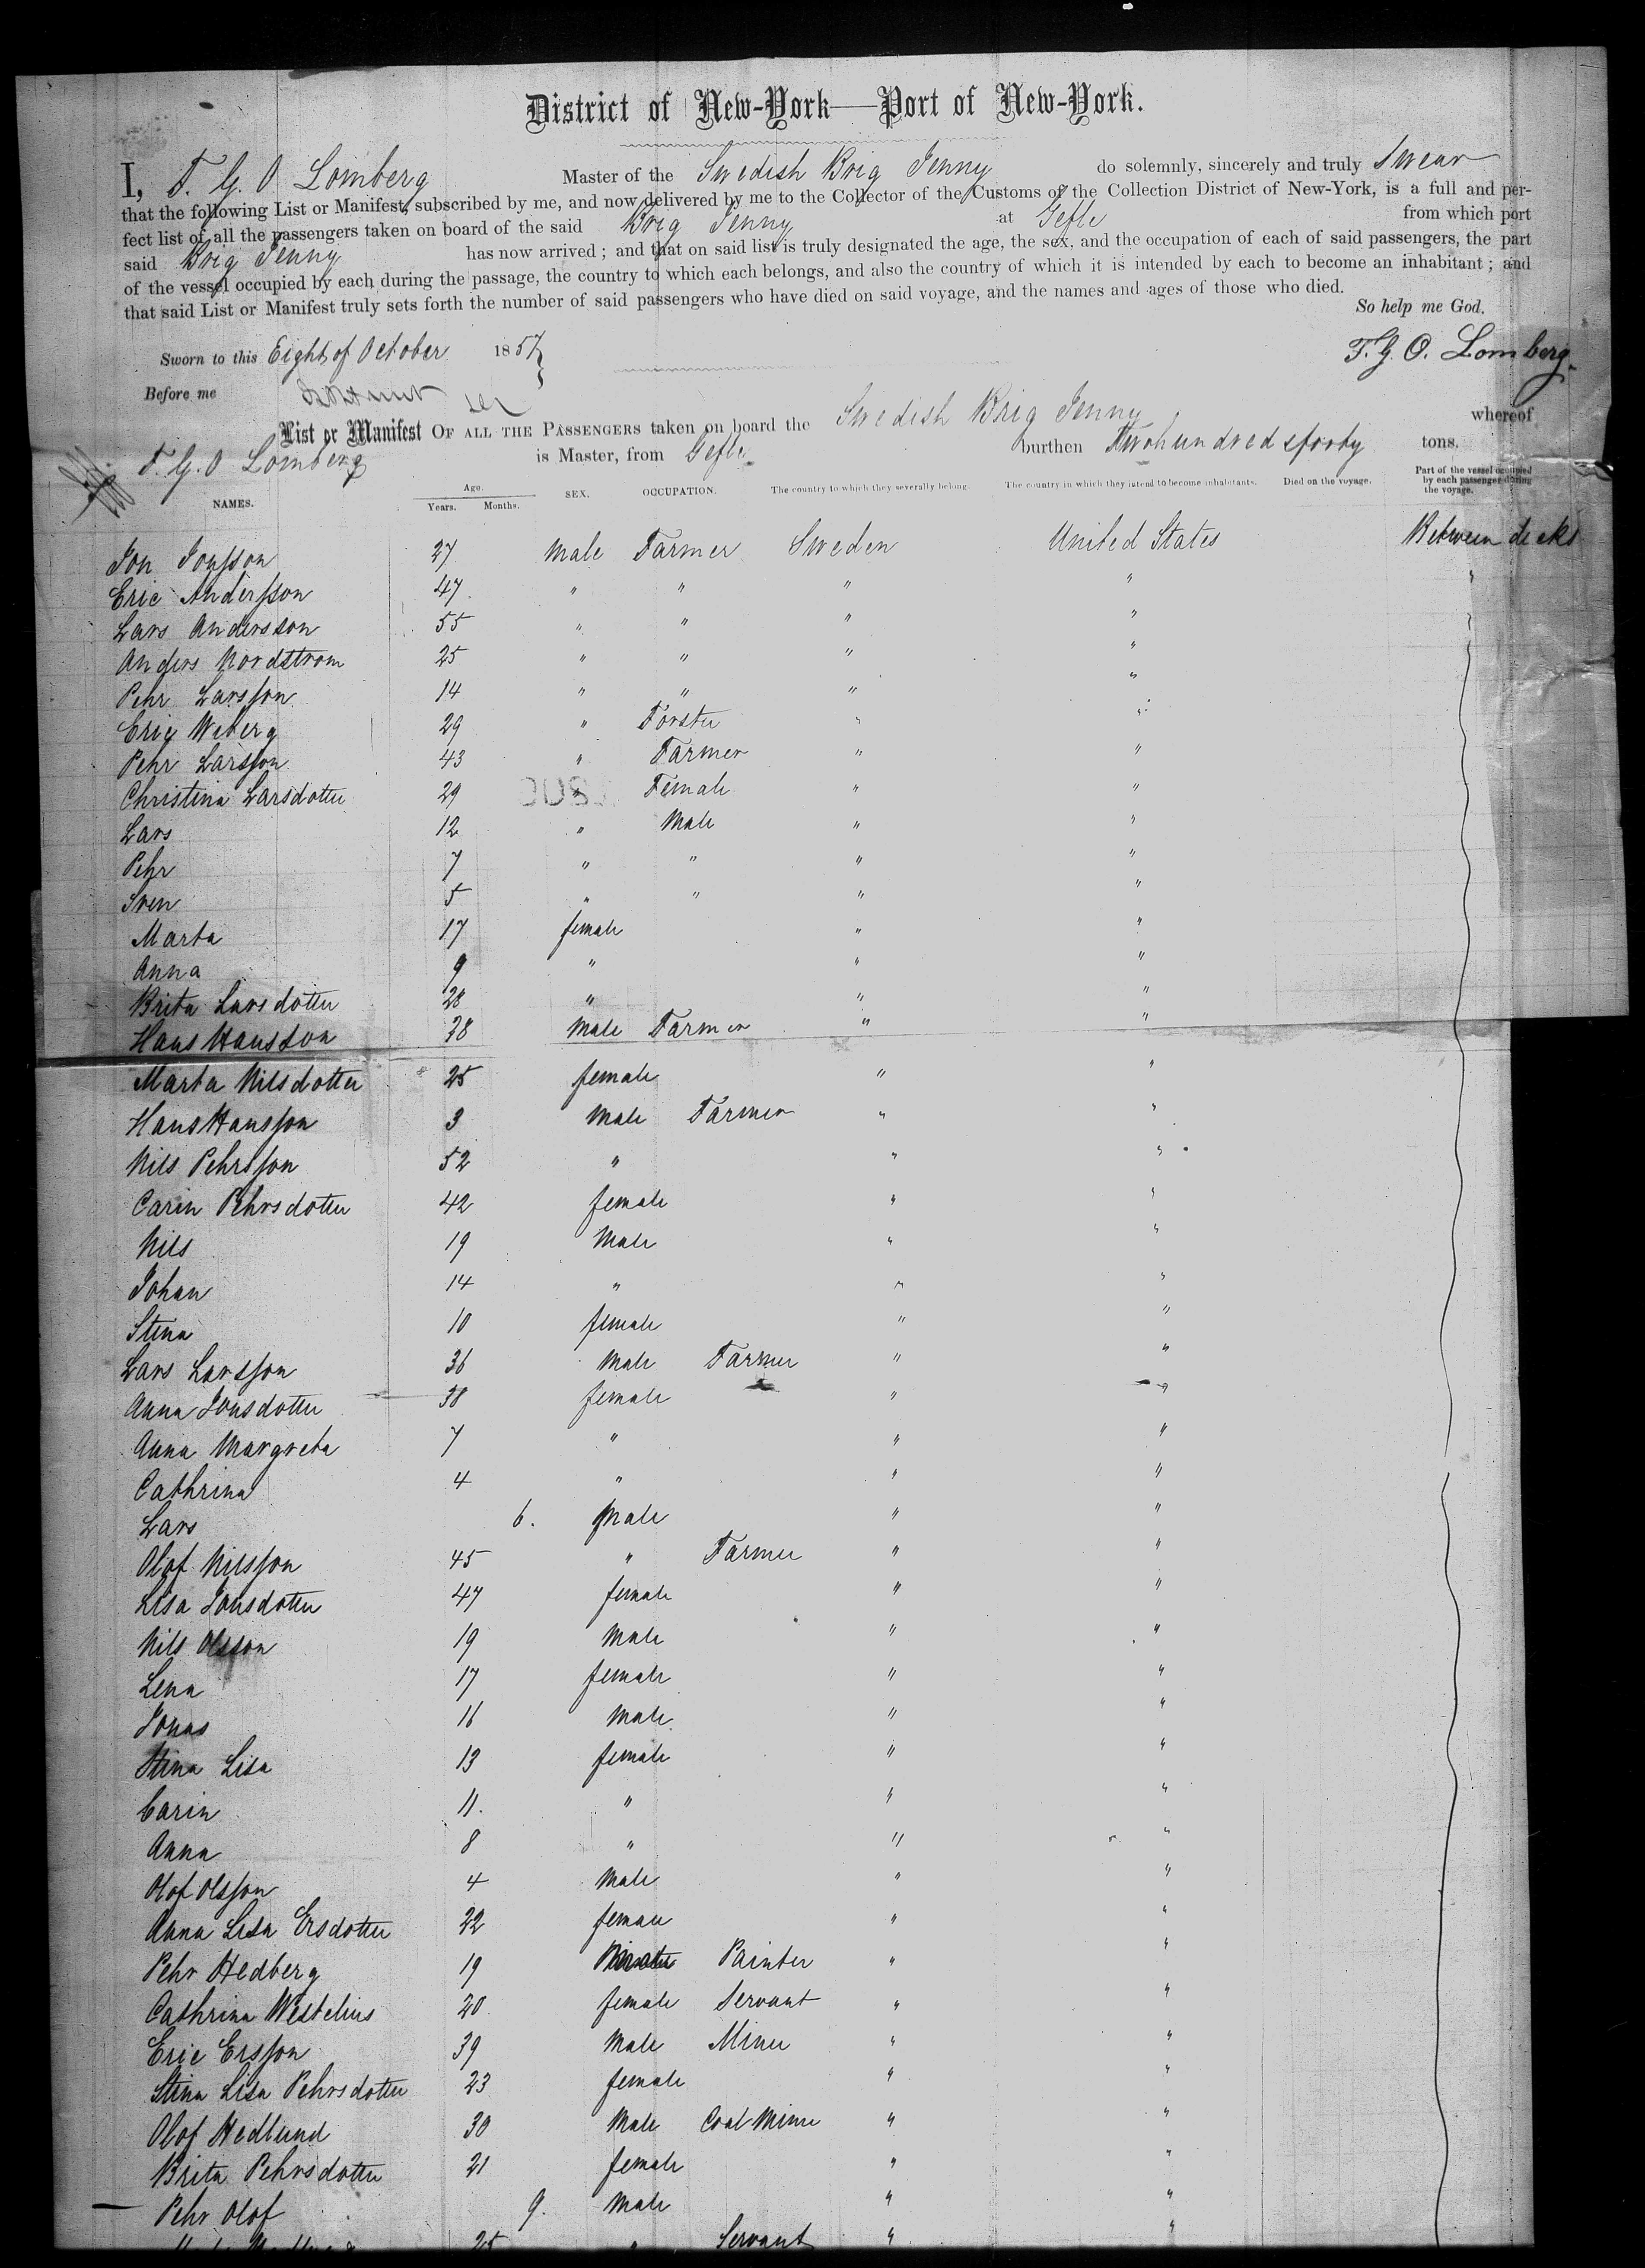 District of New-York—Port of New-York.
I, F. G. O Lomberg Master of the Swedish Brig Jenny do solemnly, sincerely and truly Swear
that the following List or Manifest, subscribed by me, and now delivered by me to the Collector of the Customs of the Collection District of New-York, is a full and per-
fect list of all the passengers taken on board of the said Brig Jenny at Gefle from which port
said Brig Jenny has now arrived; and that on said list is truly designated the age, the sex, and the occupation of each of said passengers, the part
of the vessel occupied by each during the passage, the country to which each belongs, and also the country of which it is intended by each to become an inhabitant; and
that said List or Manifest truly sets forth the number of said passengers who have died on said voyage, and the names and ages of those who died.
So help me God.
Sworn to this Eight of October 1857
F. G. O. Lomberg
Before me
List or Manifest OF ALL THE PASSENGERS taken on board the Swedish Brig Jenny whereof
F. G. O Lomberg is Master, from Gefle burthen Twohundred & forty tons.
NAMES. Age. Years. Months. SEX. OCCUPATION. The country to which they severally belong. The country in which they intend to become inhabitants. Died on the voyage. Part of the vessel occupied by each passenger during the voyage.
Jon Jonsson 27 Male Farmer Sweden United States Between decks
Eric Andersson 47 " " " " "
Lars Andersson 55 " " " "
Anders Nordstrom 25 " " " "
Pehr Larsson 14 " " " "
Eric Weberg 29 " Forster " "
Pehr Larsson 43 " Farmer " "
Christina Larsdotter 29 " Female " "
Lars 12 " Male " "
Pehr 7 " " " "
Sven 5 " " " "
Marta 17 female " "
Anna 9 " " "
Brita Larsdotter 28 " " "
Hans Hansson 38 Male Farmer " "
Marta Nilsdotter 25 female " "
Hans Hansson 3 Male Farmer " "
Nils Pehrsson 52 " " "
Carin Pehrsdotter 42 female " "
Nils 19 Male " "
Johan 14 " " "
Stina 10 female " "
Lars Larsson 36 Male Farmer " "
Anna Jonsdotter 38 female " "
Anna Margreta 7 " " "
Cathrina 4 " " "
Lars 6. Male " "
Olof Nilsson 45 " Farmer " "
Lisa Jonsdotter 47 female " "
Nils Olsson 19 Male " "
Lena 17 female " "
Jonas 16 Male " "
Stina Lisa 13 female " "
Carin 11. " " "
Anna 8 " " "
Olof Olsson 4 Male " "
Anna Lisa Ersdotter 22 female " "
Pehr Hedberg 19 Painter " "
Cathrina Westelius 20 female Servant " "
Eric Ersson 39 Male Miner " "
Stina Lisa Pehrsdotter 23 female " "
Olof Hedlund 30 Male Coal Miner " "
Brita Pehrsdotter 21 female " "
Pehr Olof 9. Male " "
25 " Servant " "